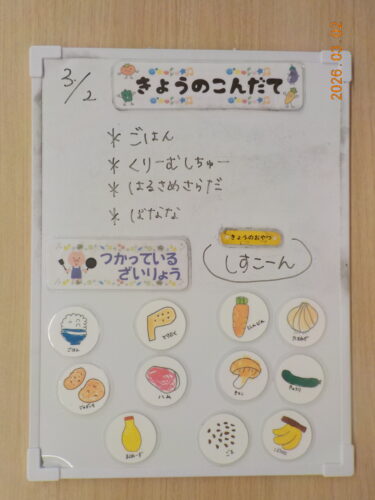 2026.03.02
3/2
きょうのこんだて
* ごはん
* くりーむしちゅー
* はるさめさらだ
* ばなな
つかっている
ざいりょう
きょうのおやつ
しすこーん
ごはん
とりにく
にんじん
たまねぎ
じゃがいも
ハム
きのこ
きゅうり
まよねーず
ごま
ばなな